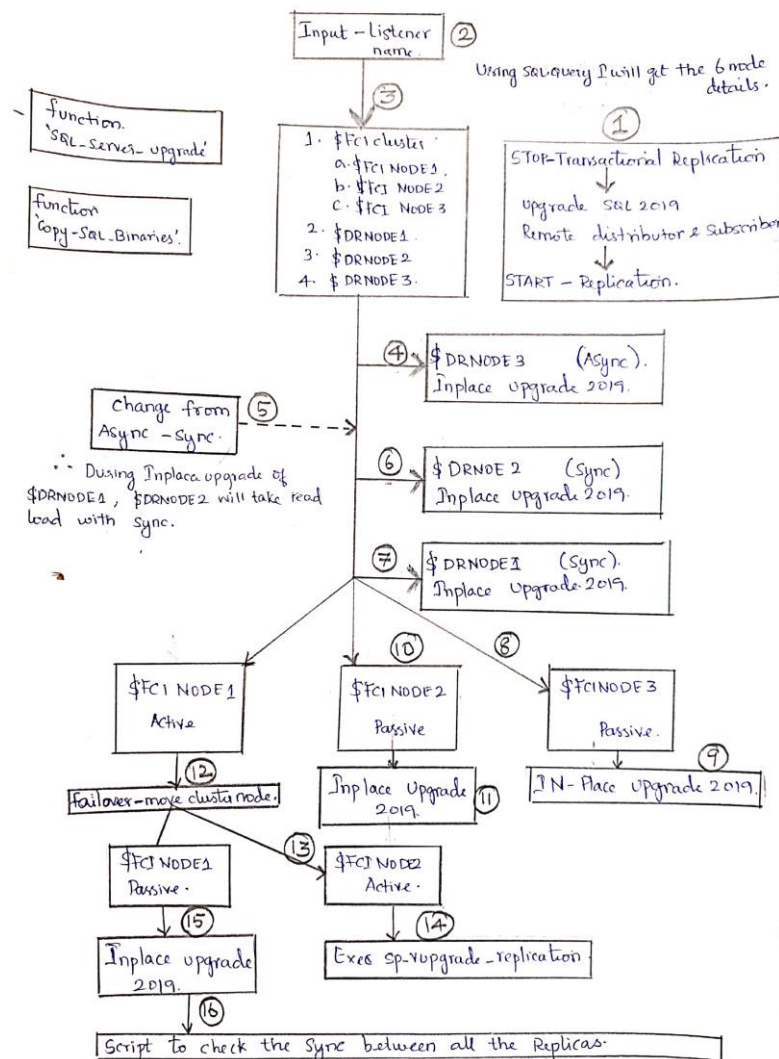 Input - Listener
name.
②
Using SQL query I will get the 6 node
details.
③
function.
'SQL_Server_upgrade'
function
'Copy-SQL_Binaries'.
1. $FCI cluster
a. $FCI NODE1.
b. $FCI NODE2
c. $FCI NODE3
2. $DRNODE1.
3. $DRNODE2
4. $DRNODE3.
①
STOP-Transactional Replication
upgrade SQL 2019
Remote distributor & Subscriber
START - Replication.
④
$DRNODE3 (ASync).
Inplace upgrade 2019.
Change from
Async - Sync.
⑤
∴ During Inplaca upgrade of
$DRNODE1, $DRNODE2 will take read
load with Sync.
⑥
$DRNOE 2 (Sync)
Inplace upgrade 2019.
⑦
$DRNODE1 (Sync).
Inplace upgrade 2019.
⑩
⑧
$FCI NODE1
Active
$FCI NODE2
Passive
$FCINODE3
Passive.
⑫
failover-move cluster node.
Inplace upgrade
2019.
⑪
⑨
IN-Place upgrade 2019.
⑬
$FCI NODE1
Passive.
$FCI NODE2
Active.
⑮
Inplace upgrade
2019.
⑭
Exec sp_vupgrade_replication
⑯
Script to check the Sync between all the Replicas.